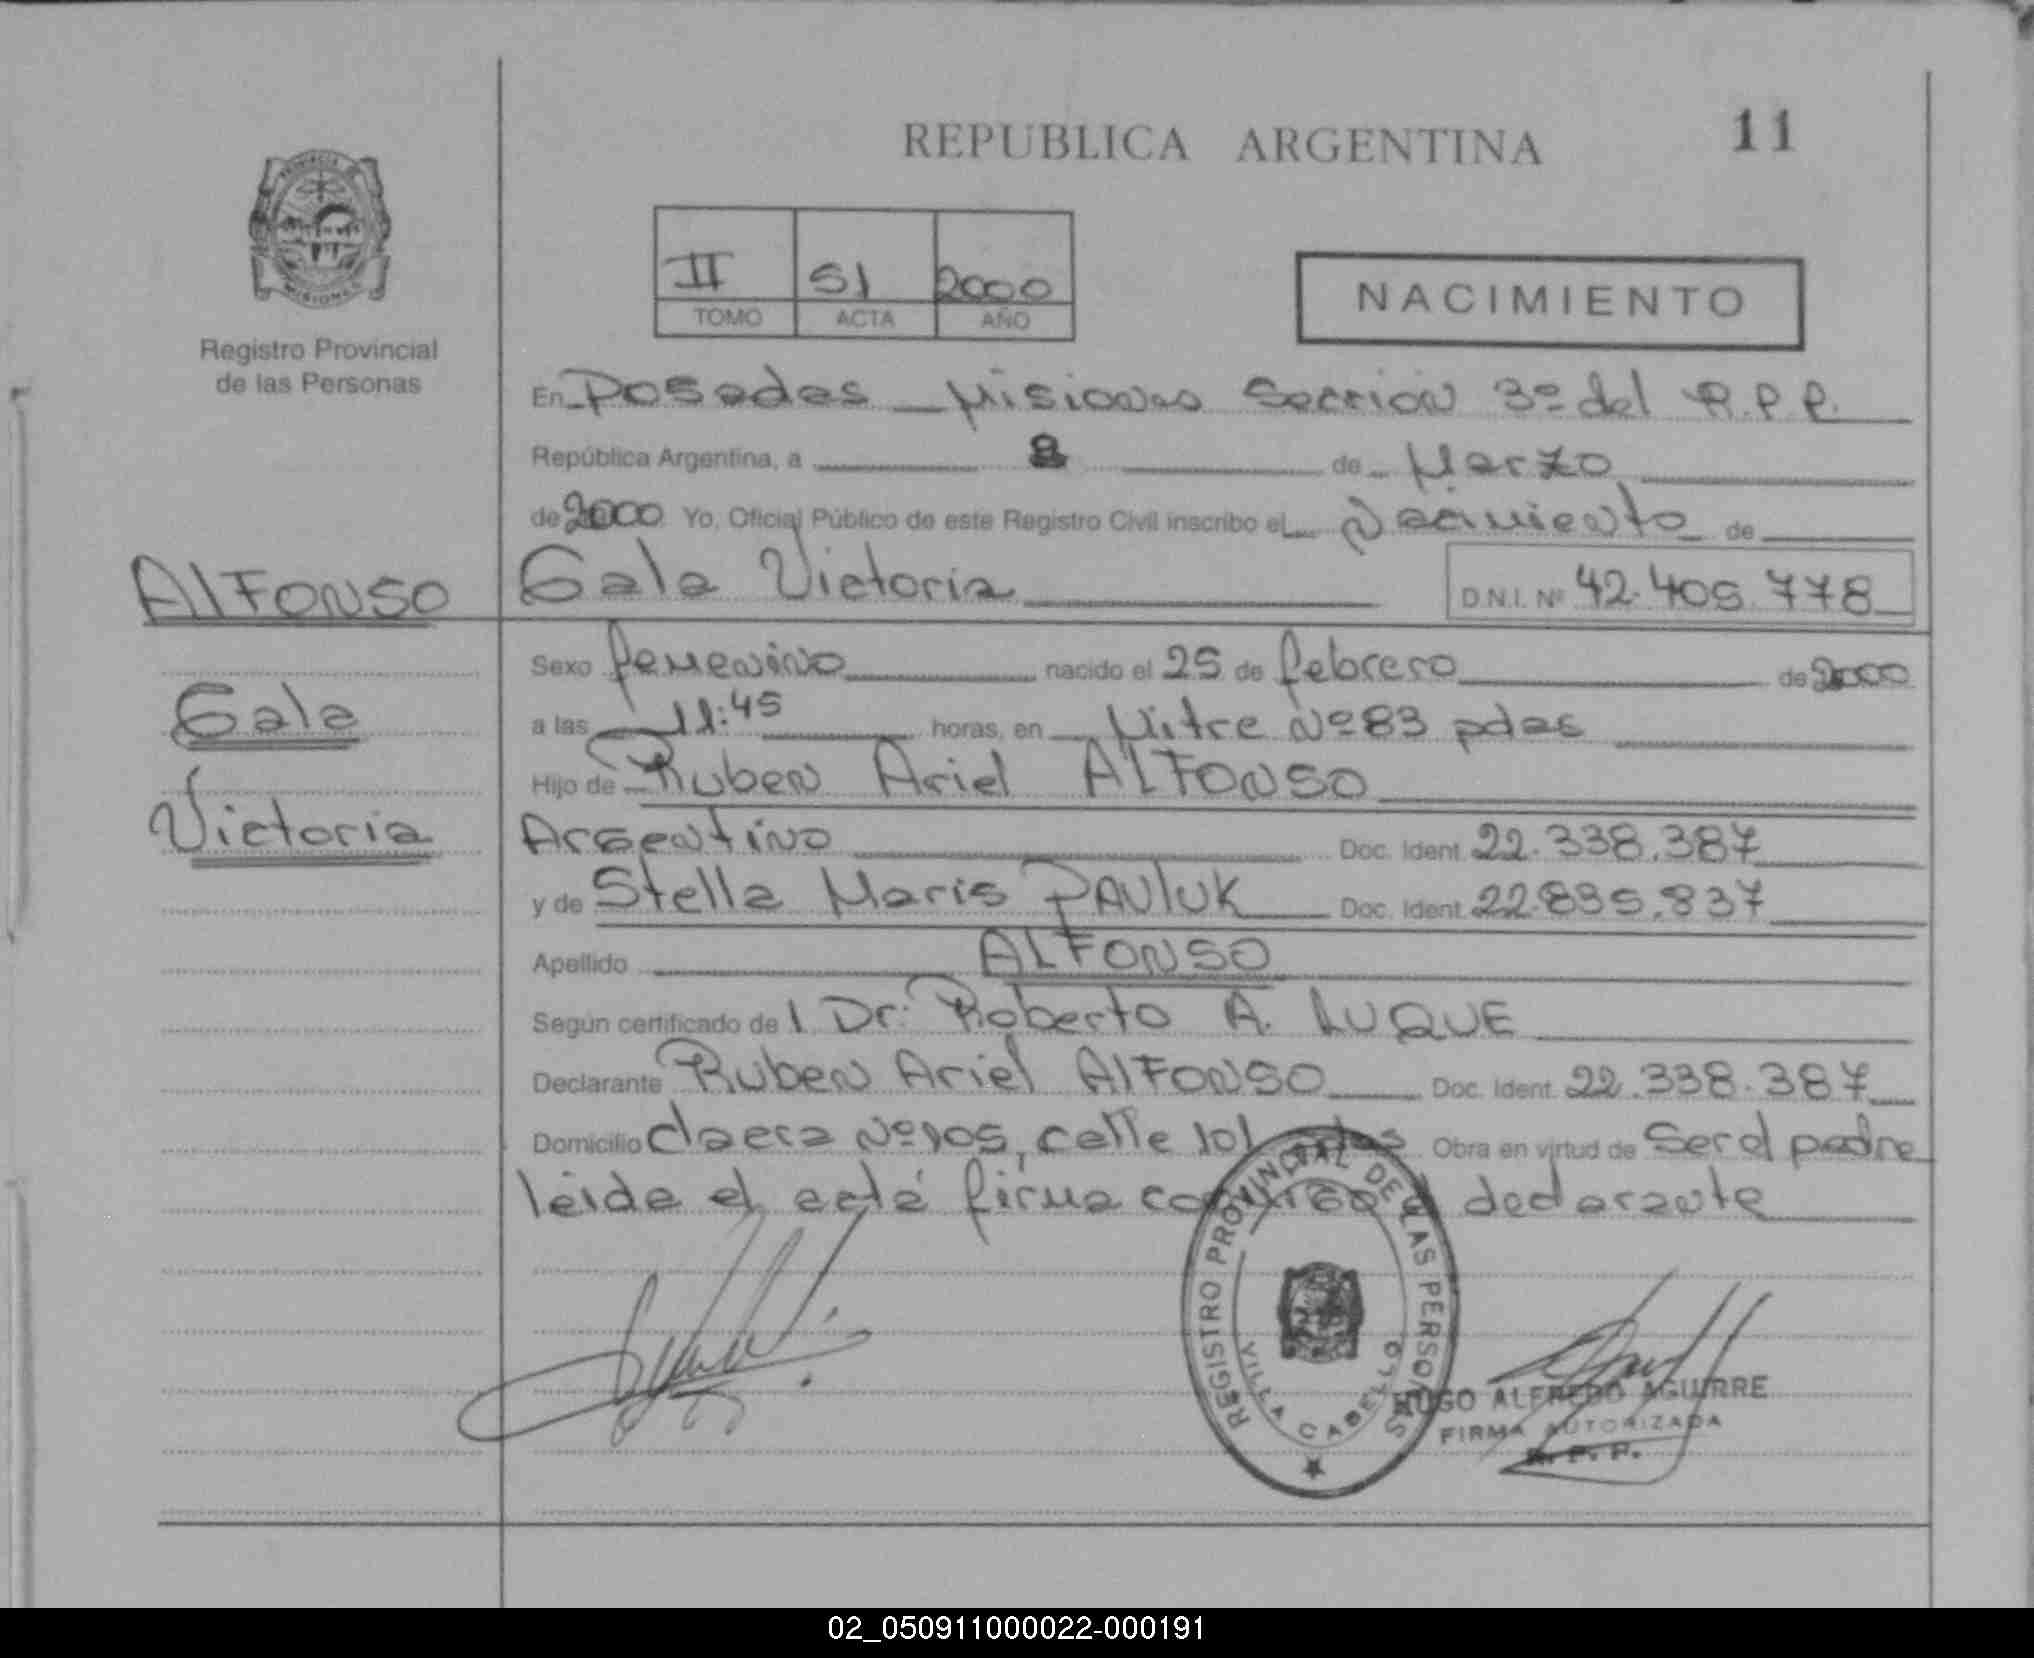 REPUBLICA ARGENTINA
11
II 51 2000
TOMO ACTA AÑO
NACIMIENTO
Registro Provincial
de las Personas
En Posadas Misiones Sección 3º del R.P.P.
República Argentina, a 8 de Marzo
de 2000 Yo, Oficial Público de este Registro Civil inscribo el Nacimiento de
ALFONSO
Gala Victoria D.N.I. Nº 42.405.778
Gala
Victoria
Sexo femenino nacido el 25 de febrero de 2000
a las 11:45 horas, en Mitre Nº 83 pdas
Hijo de Ruben Ariel ALFONSO
Argentino Doc. Ident. 22.338.387
y de Stella Maris PAVLUK Doc. Ident. 22.835.837
Apellido ALFONSO
Según certificado del Dr. Roberto A. LUQUE
Declarante Ruben Ariel ALFONSO Doc. Ident. 22.338.387
Domicilio chacra Nº 105, calle 101 pdas Obra en virtud de Ser el padre
leida el acta firma conmigo el declarante
REGISTRO PROVINCIAL DE LAS PERSONAS
VILLA CABELLO
HUGO ALFREDO AGUIRRE
FIRMA AUTORIZADA
R. P. P.
02_050911000022-000191